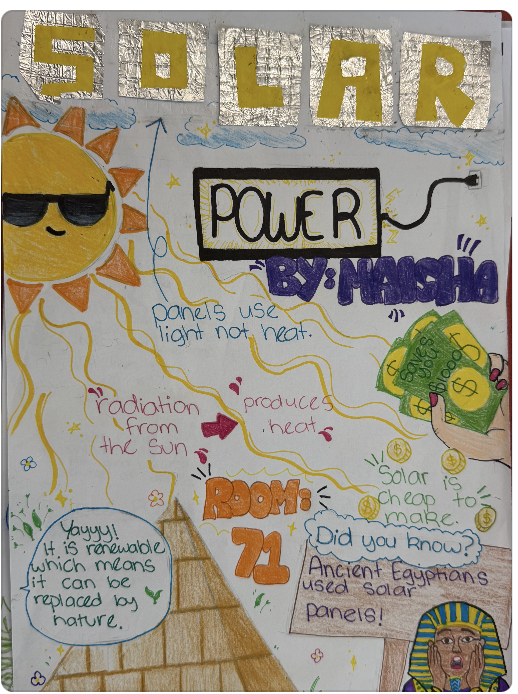 SOLAR
POWER
BY: MAISHA
panels use
light not heat.
Saves
you
$1000
radiation
from
the sun
produces
heat
Solar is
cheap to
make.
ROOM:
71
Yayyy!
It is renewable
which means
it can be
replaced by
nature.
Did you know?
Ancient Egyptians
used solar
panels!